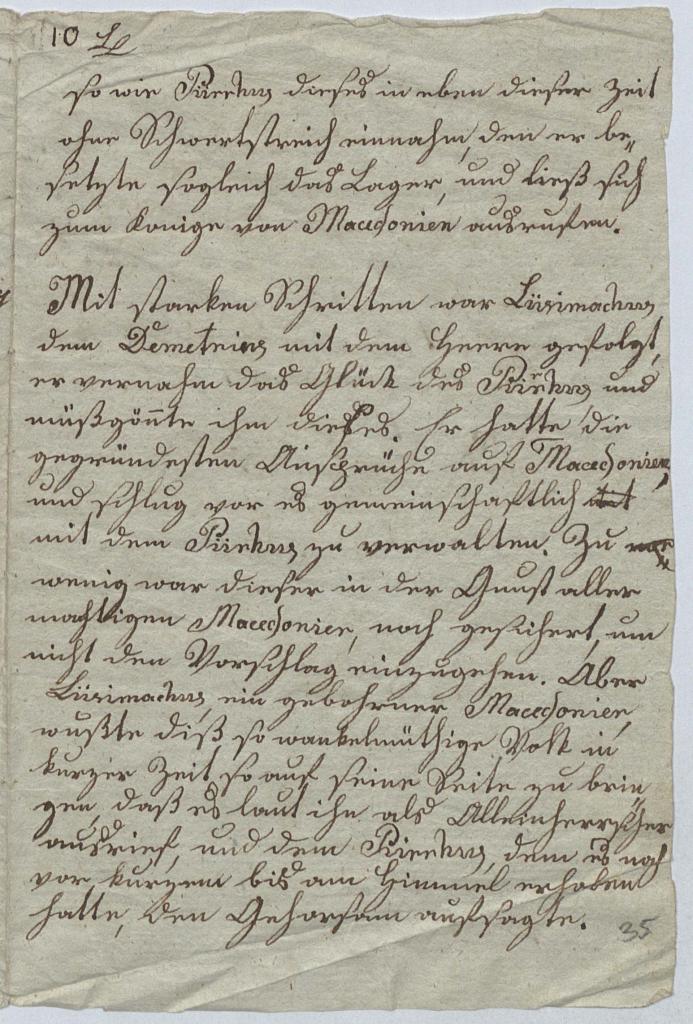 10
so wie Pürrhus dieses in eben dieser Zeit
ohne Schwertstreich einnahm, den er be„
setzte sogleich das Lager, und ließ sich
zum Konige von Macedonien ausrufen.
Mit starken Schritten war Lüsimachus
dem Demetrius mit dem Heere gefolgt,
er vernahm das Glück des Pürrhus und
müßgönnte ihm dieses. Er hatte die
gegründesten Ansprüche auf Macedonien,
und schlug vor es gemeinschaftlich
mit dem Pürrhus zu verwalten. Zu
wenig war dieser in der Gunst aller
machtigen Macedonier, noch gesichert, um
nicht den Vorschlag einzugehen. Aber
Lüsimachus, ein gebohrner Macedonier,
wußte diß so wankelmüthige Volk in
kurzer Zeit so auf seine Seite zu brin„
gen, daß es laut ihn als Alleinherrscher
ausrief, und dem Pürrhus, dem es noch
vor kurzem bis am Himmel erhoben
hatte, den Gehorsam aufsagte.
35